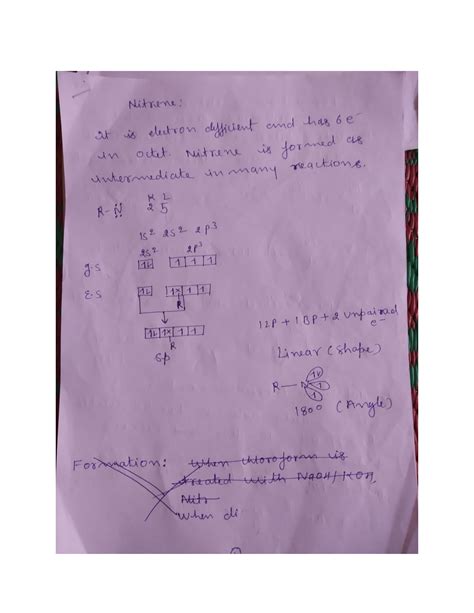 Nitrene:
It is electron defficient and has 6e-
in octet. Nitrene is formed as
intermediate in many reactions.
K L
R-N̈: 2 5
1s² 2s² 2p³
2s² 2p³
g.s 1L 1 1 1
E.S 1L 1x 1 1
R
1L 1x 1 1
R
sp
1LP + 1BP + 2 unpaired
e-
Linear (shape)
R—N 1L 1 1
180° (Angle)
Formation: When chloroform is
treated with NaOH/KOH,
Nitr
When di